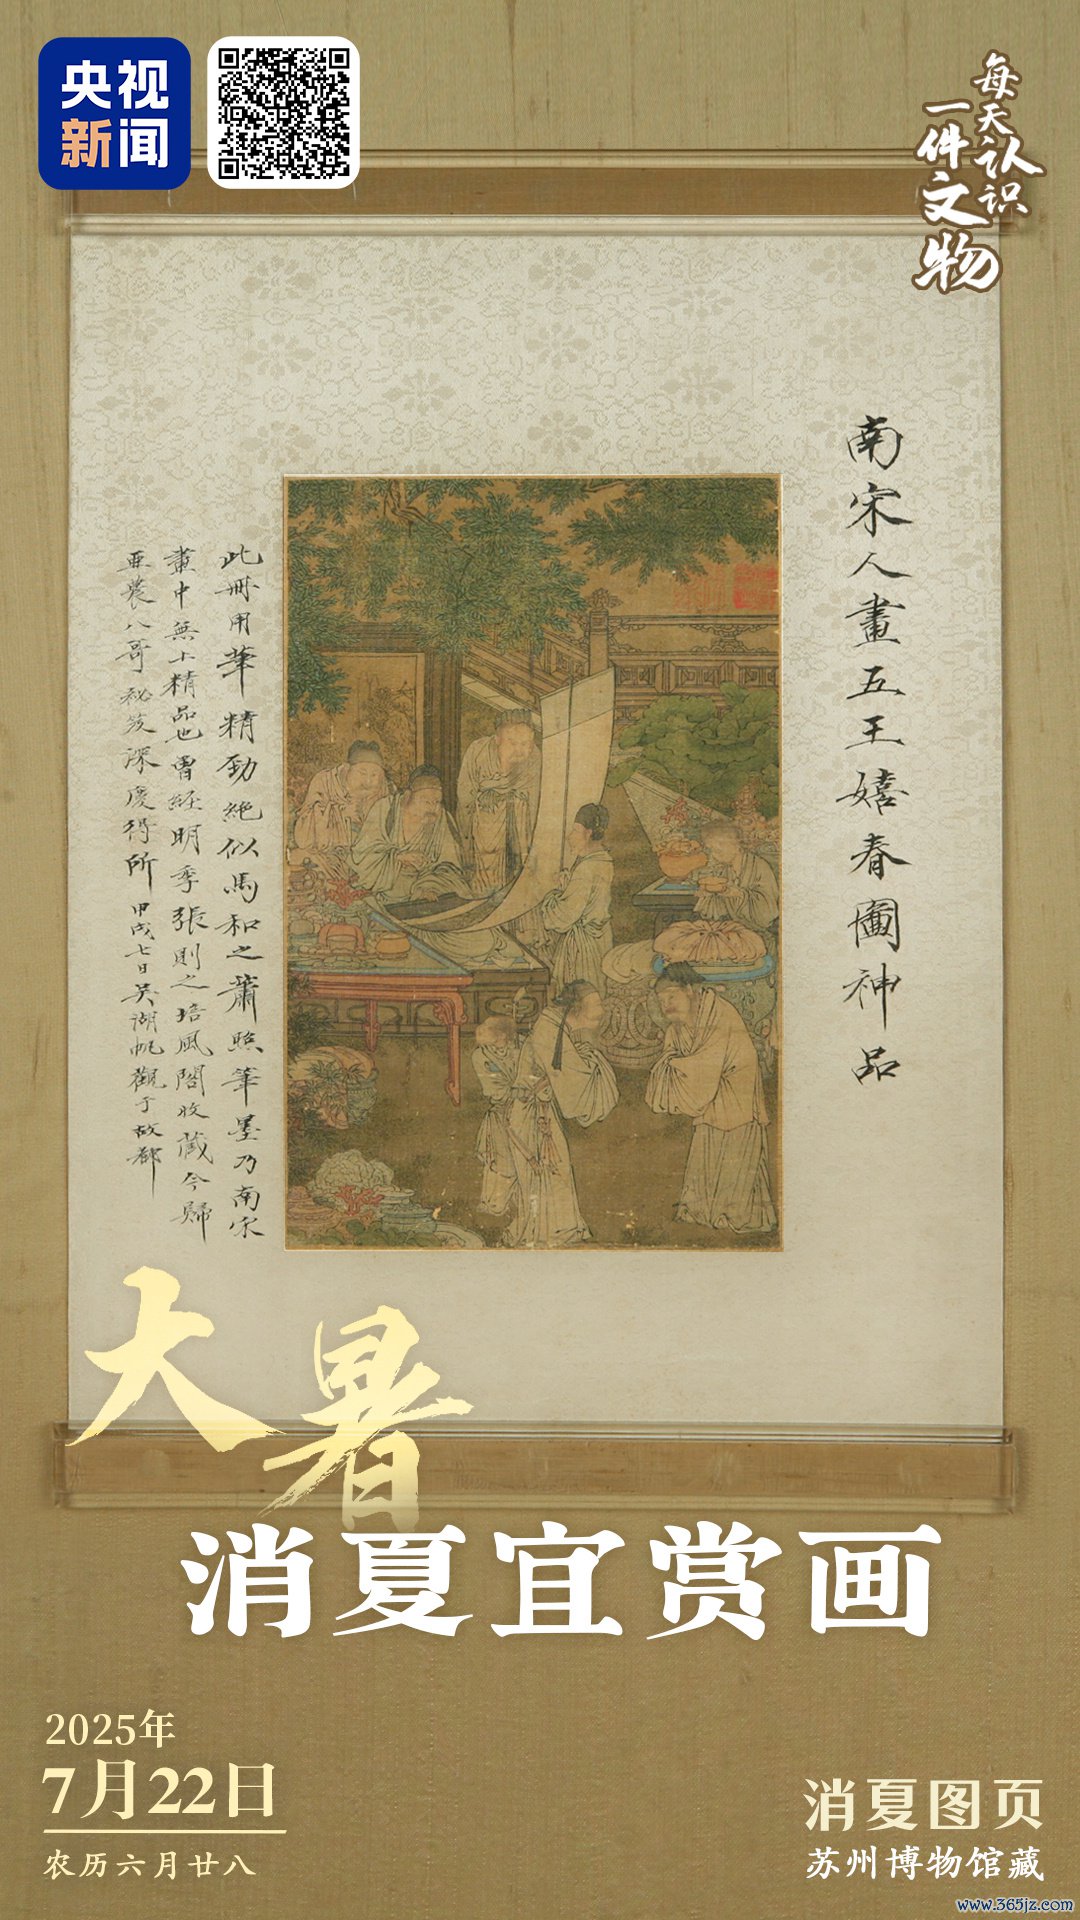 央视
新闻
每天认识
一件文物
南宋人畫五王嬉春圖神品
此冊用筆精勁絕似馬和之蕭照筆墨乃南宋
畫中無上精品也曾經明季張則之培風閣收藏今歸
亚農八哥秘笈深慶得所 甲戌七日吳湖帆觀于故都
大暑
消夏宜赏画
2025年
7月22日
农历六月廿八
消夏图页
苏州博物馆藏
www.365jz.com